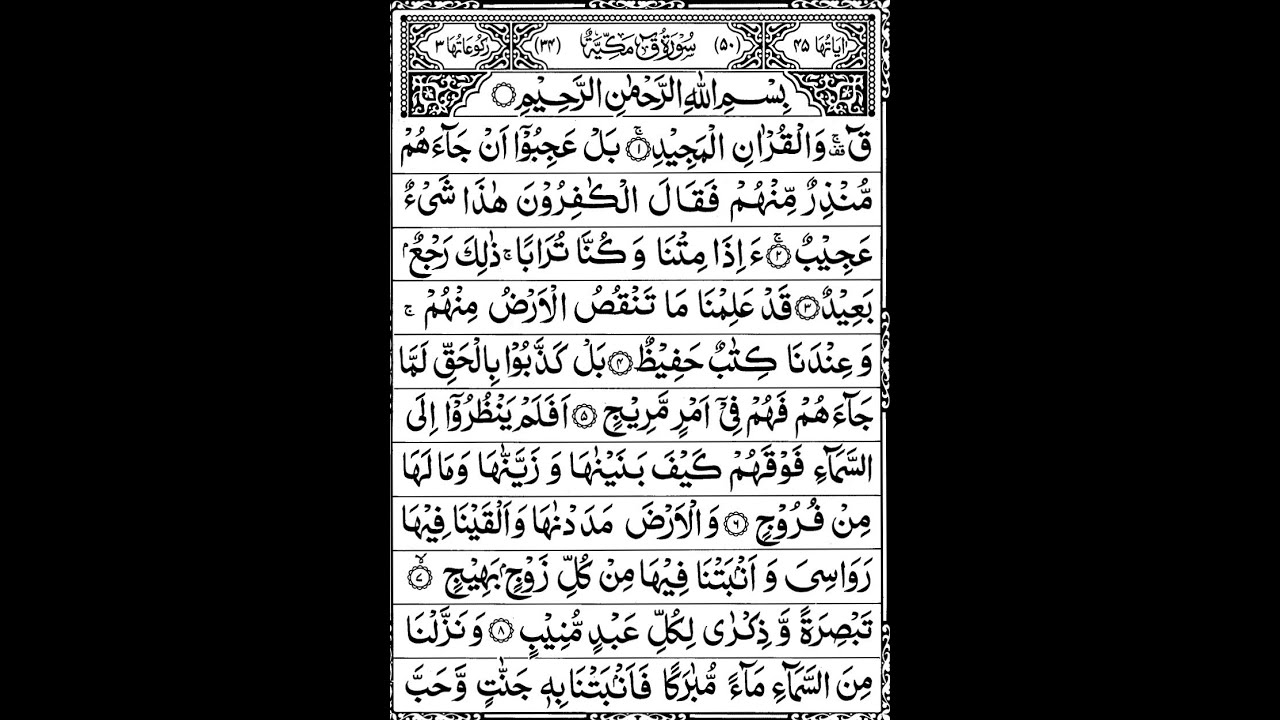 اٰیَاتُهَا ۴۵ (۵۰) سُوْرَةُ قٓ مَكِّیَّةٌ (۳۴) رُكُوْعَاتُهَا ۳
بِسْمِ اللّٰهِ الرَّحْمٰنِ الرَّحِیْمِ ۝
قٓ ۚ وَالْقُرْاٰنِ الْمَجِیْدِ ۝۱ۚ بَلْ عَجِبُوْۤا اَنْ جَآءَهُمْ
مُّنْذِرٌ مِّنْهُمْ فَقَالَ الْكٰفِرُوْنَ هٰذَا شَیْءٌ
عَجِیْبٌ ۝۲ۚ ءَاِذَا مِتْنَا وَ كُنَّا تُرَابًا ۚ ذٰلِكَ رَجْعٌۢ
بَعِیْدٌ ۝۳ قَدْ عَلِمْنَا مَا تَنْقُصُ الْاَرْضُ مِنْهُمْ ۚ
وَ عِنْدَنَا كِتٰبٌ حَفِیْظٌ ۝۴ بَلْ كَذَّبُوْا بِالْحَقِّ لَمَّا
جَآءَهُمْ فَهُمْ فِیْۤ اَمْرٍ مَّرِیْجٍ ۝۵ اَفَلَمْ یَنْظُرُوْۤا اِلَی
السَّمَآءِ فَوْقَهُمْ كَیْفَ بَنَیْنٰهَا وَ زَیَّنّٰهَا وَمَا لَهَا
مِنْ فُرُوْجٍ ۝۶ وَالْاَرْضَ مَدَدْنٰهَا وَاَلْقَیْنَا فِیْهَا
رَوَاسِیَ وَ اَنْۢبَتْنَا فِیْهَا مِنْ كُلِّ زَوْجٍۭ بَهِیْجٍ ۝۷ۙ
تَبْصِرَةً وَّ ذِكْرٰی لِكُلِّ عَبْدٍ مُّنِیْبٍ ۝۸ وَ نَزَّلْنَا
مِنَ السَّمَآءِ مَآءً مُّبٰرَكًا فَاَنْۢبَتْنَا بِهٖ جَنّٰتٍ وَّحَبَّ